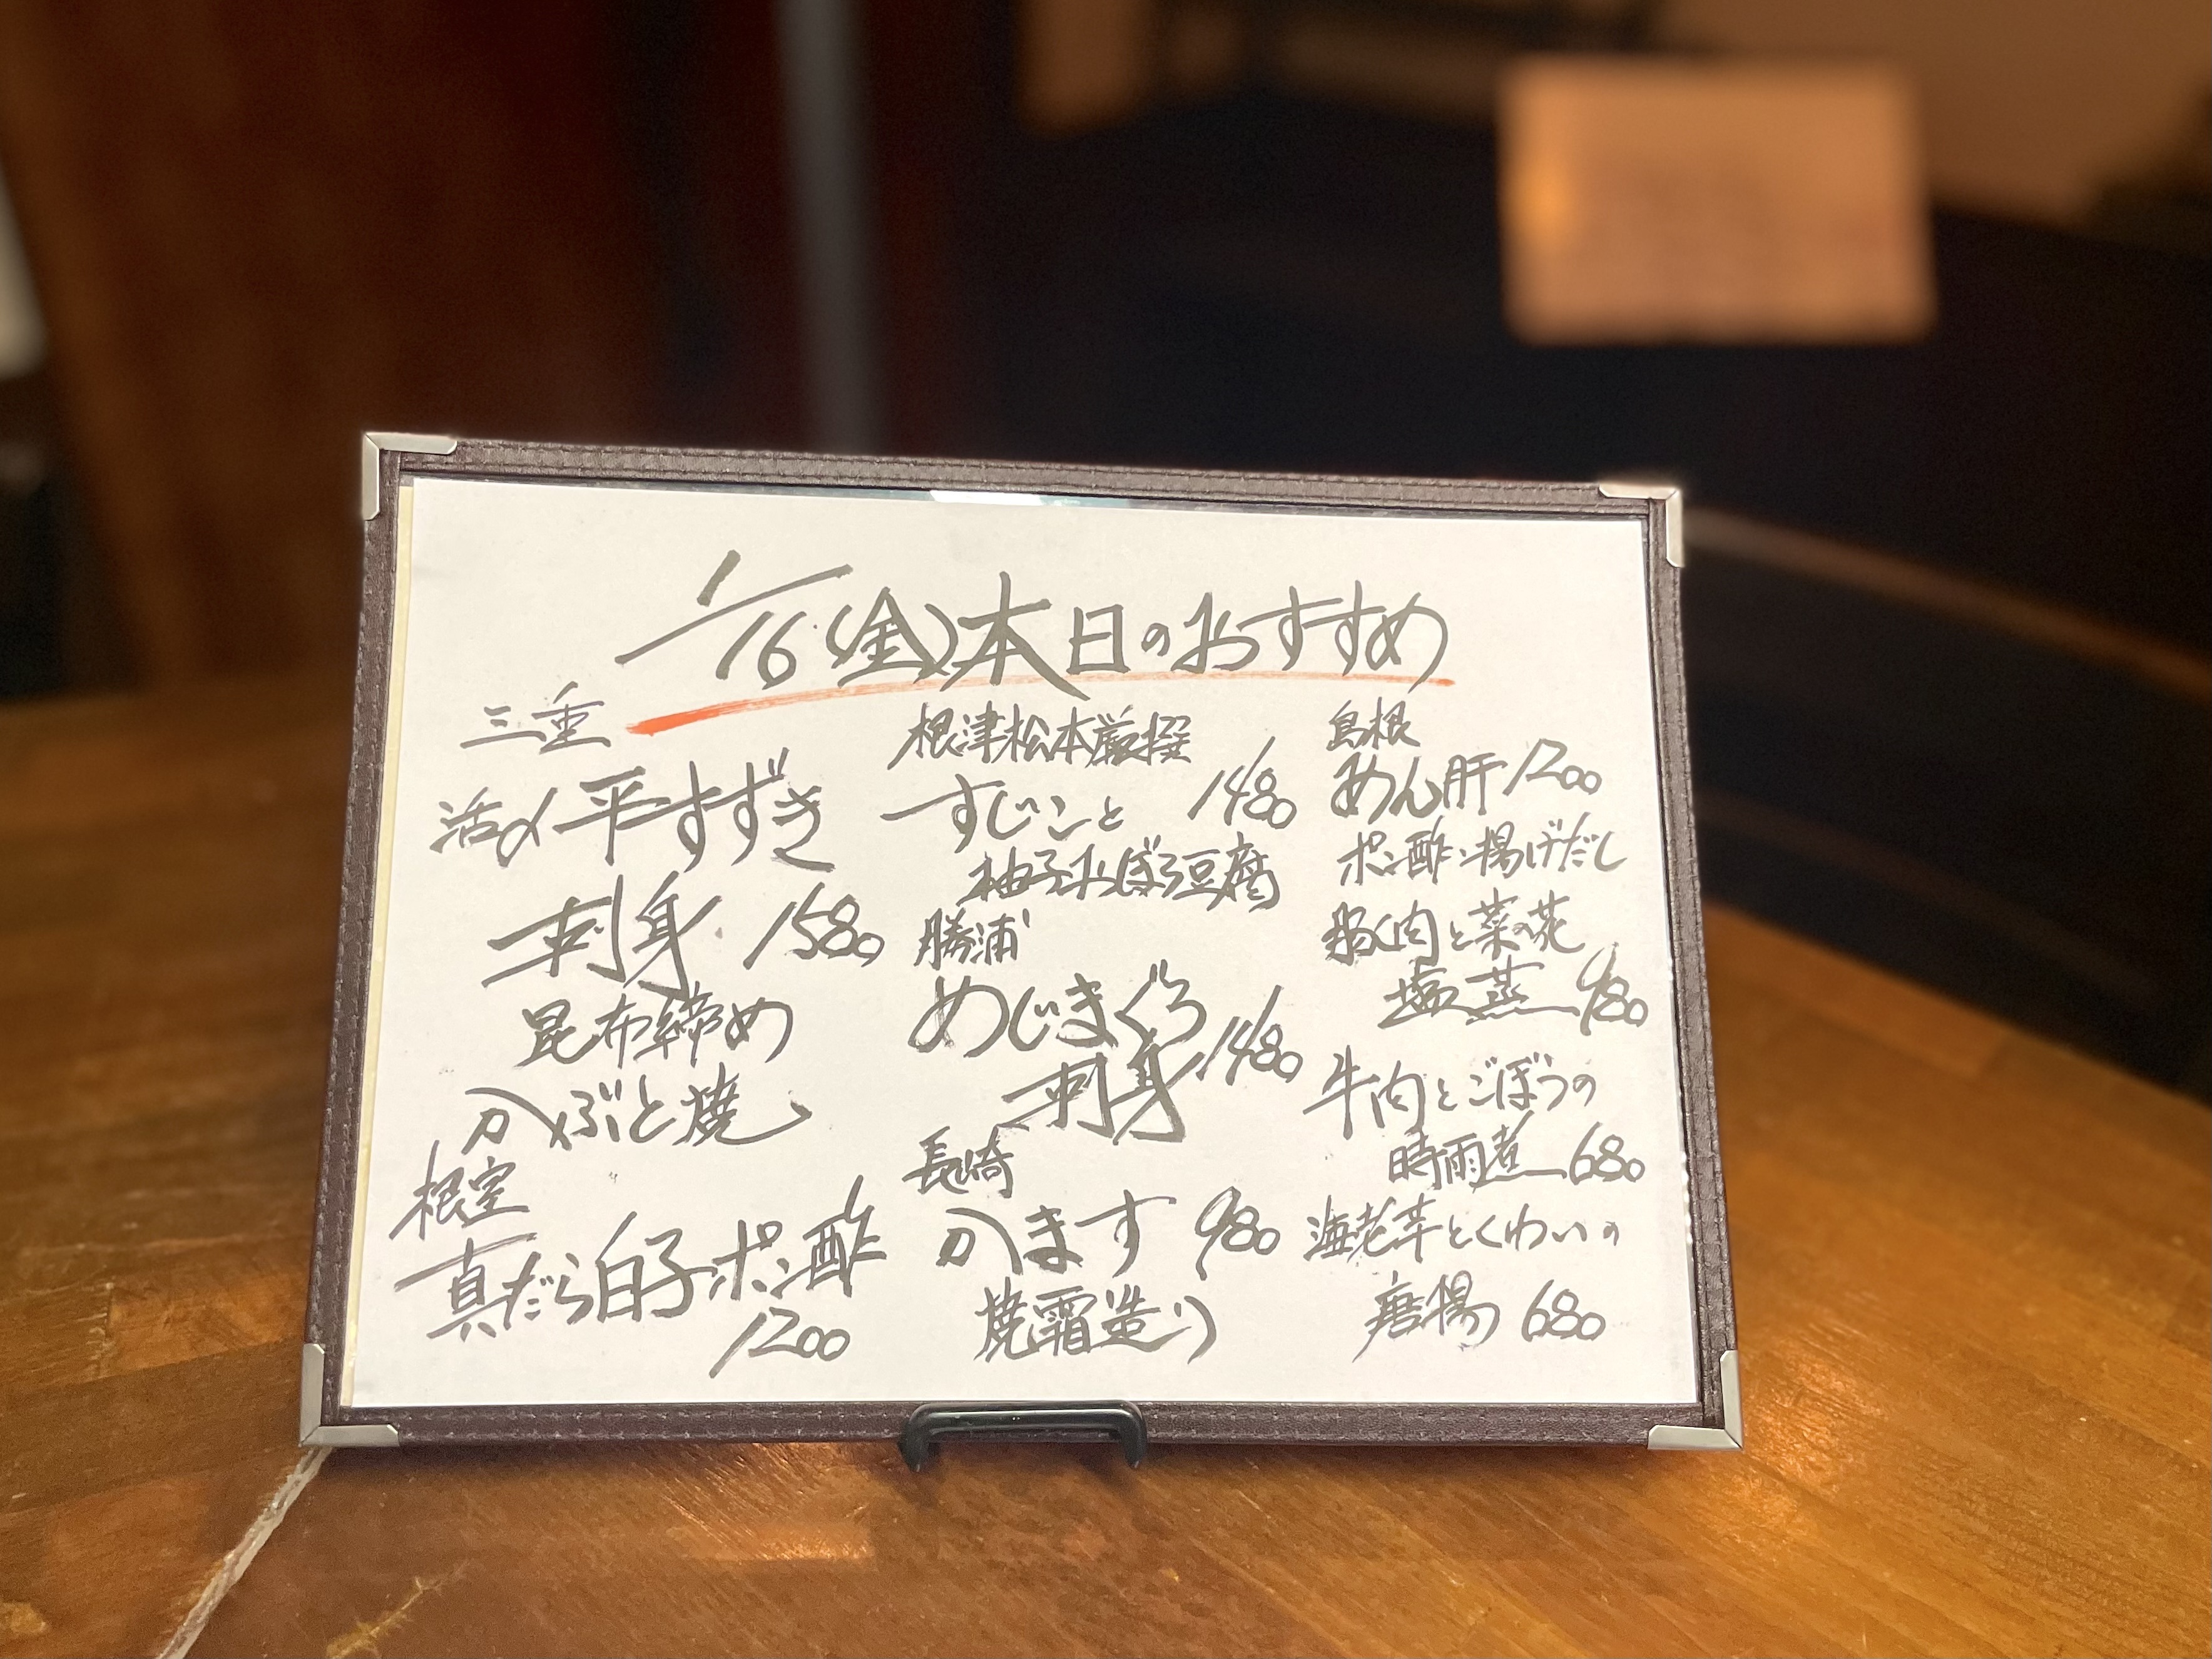 1/16(金)本日のおすすめ
三重
活〆平すずき
刺身 1580
昆布締め
かぶと焼
根室
真だら白子ポン酢
1200
根津松本厳撰
すじこと 1480
柚子おぼろ豆腐
勝浦
めじまぐろ
刺身 1480
長崎
かます 980
焼霜造り
島根
あん肝 1200
ポン酢 揚げだし
豚肉と菜の花
塩蒸 980
牛肉とごぼうの
時雨煮 680
海老芋とくわいの
唐揚 680